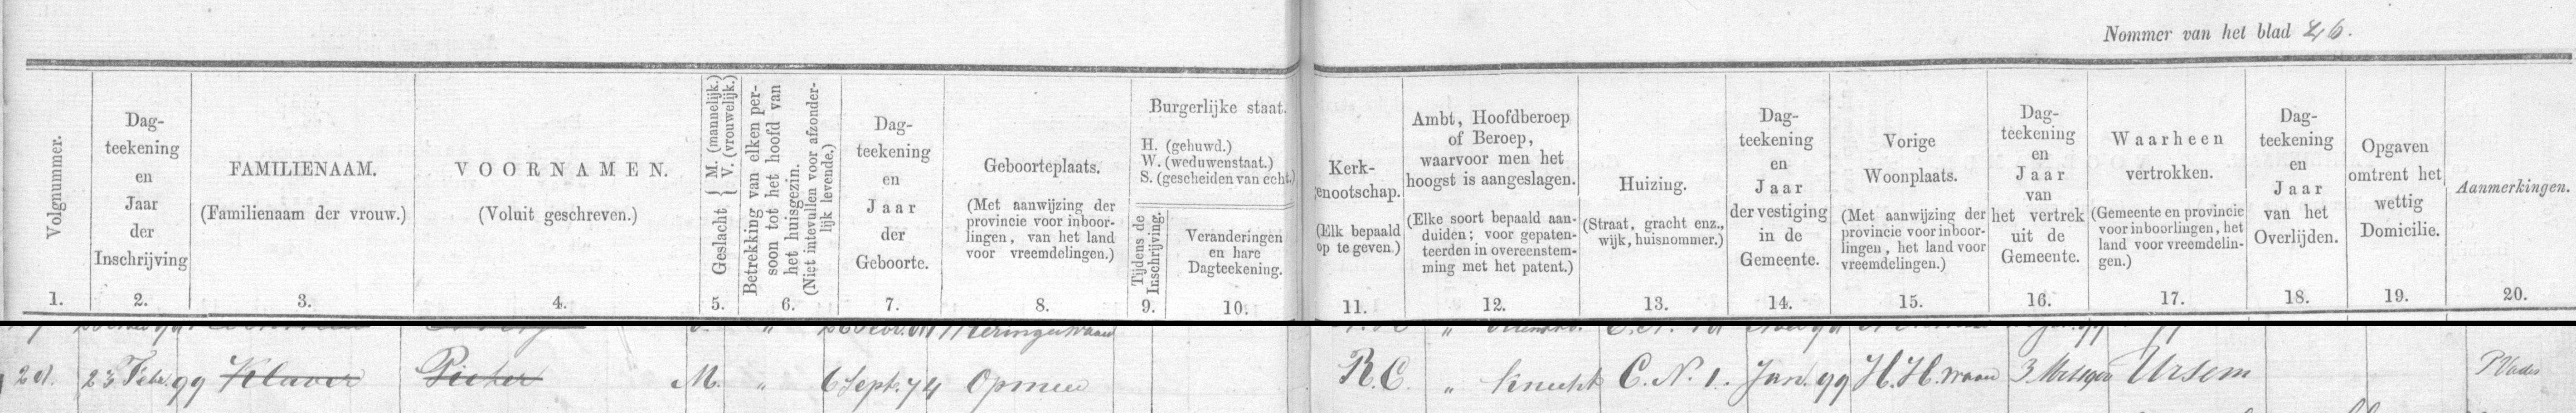 Nommer van het blad 46.
Volgnummer.
1.
Dag-
teekening
en
Jaar
der
Inschrijving
2.
FAMILIENAAM.
(Familienaam der vrouw.)
3.
VOORNAMEN.
(Voluit geschreven.)
4.
Geslacht { M. (mannelijk.) V. (vrouwelijk.) }
5.
Betrekking van elken per-
soon tot het hoofd van
het huisgezin.
(Niet intevullen voor afzonder-
lijk levende.)
6.
Dag-
teekening
en
Jaar
der
Geboorte.
7.
Geboorteplaats.
(Met aanwijzing der
provincie voor inboor-
lingen, van het land
voor vreemdelingen.)
8.
Burgerlijke staat.
H. (gehuwd.)
W. (weduwenstaat.)
S. (gescheiden van echt.)
Tijdens de
Inschrijving.
9.
Veranderingen
en hare
Dagteekening.
10.
Kerk-
enootschap.
(Elk bepaald
op te geven.)
11.
Ambt, Hoofdberoep
of Beroep,
waarvoor men het
hoogst is aangeslagen.
(Elke soort bepaald aan-
duiden; voor gepaten-
teerden in overeenstem-
ming met het patent.)
12.
Huizing.
(Straat, gracht enz.,
wijk, huisnommer.)
13.
Dag-
teekening
en
Jaar
der vestiging
in de
Gemeente.
14.
Vorige
Woonplaats.
(Met aanwijzing der
provincie voor inboor-
lingen, het land voor
vreemdelingen.)
15.
Dag-
teekening
en
Jaar
van
het vertrek
uit de
Gemeente.
16.
Waarheen
vertrokken.
(Gemeente en provincie
voor inboorlingen, het
land voor vreemdelin-
gen.)
17.
Dag-
teekening
en
Jaar
van het
Overlijden.
18.
Opgaven
omtrent het
wettig
Domicilie.
19.
Aanmerkingen.
20.
23 Febr. 99 Klaver Pieter M. " 6 Sept. 74 Opmeer R.C. " Knecht C. N. 1. Jan. 99 H.H.waard 3 1900 Ursem